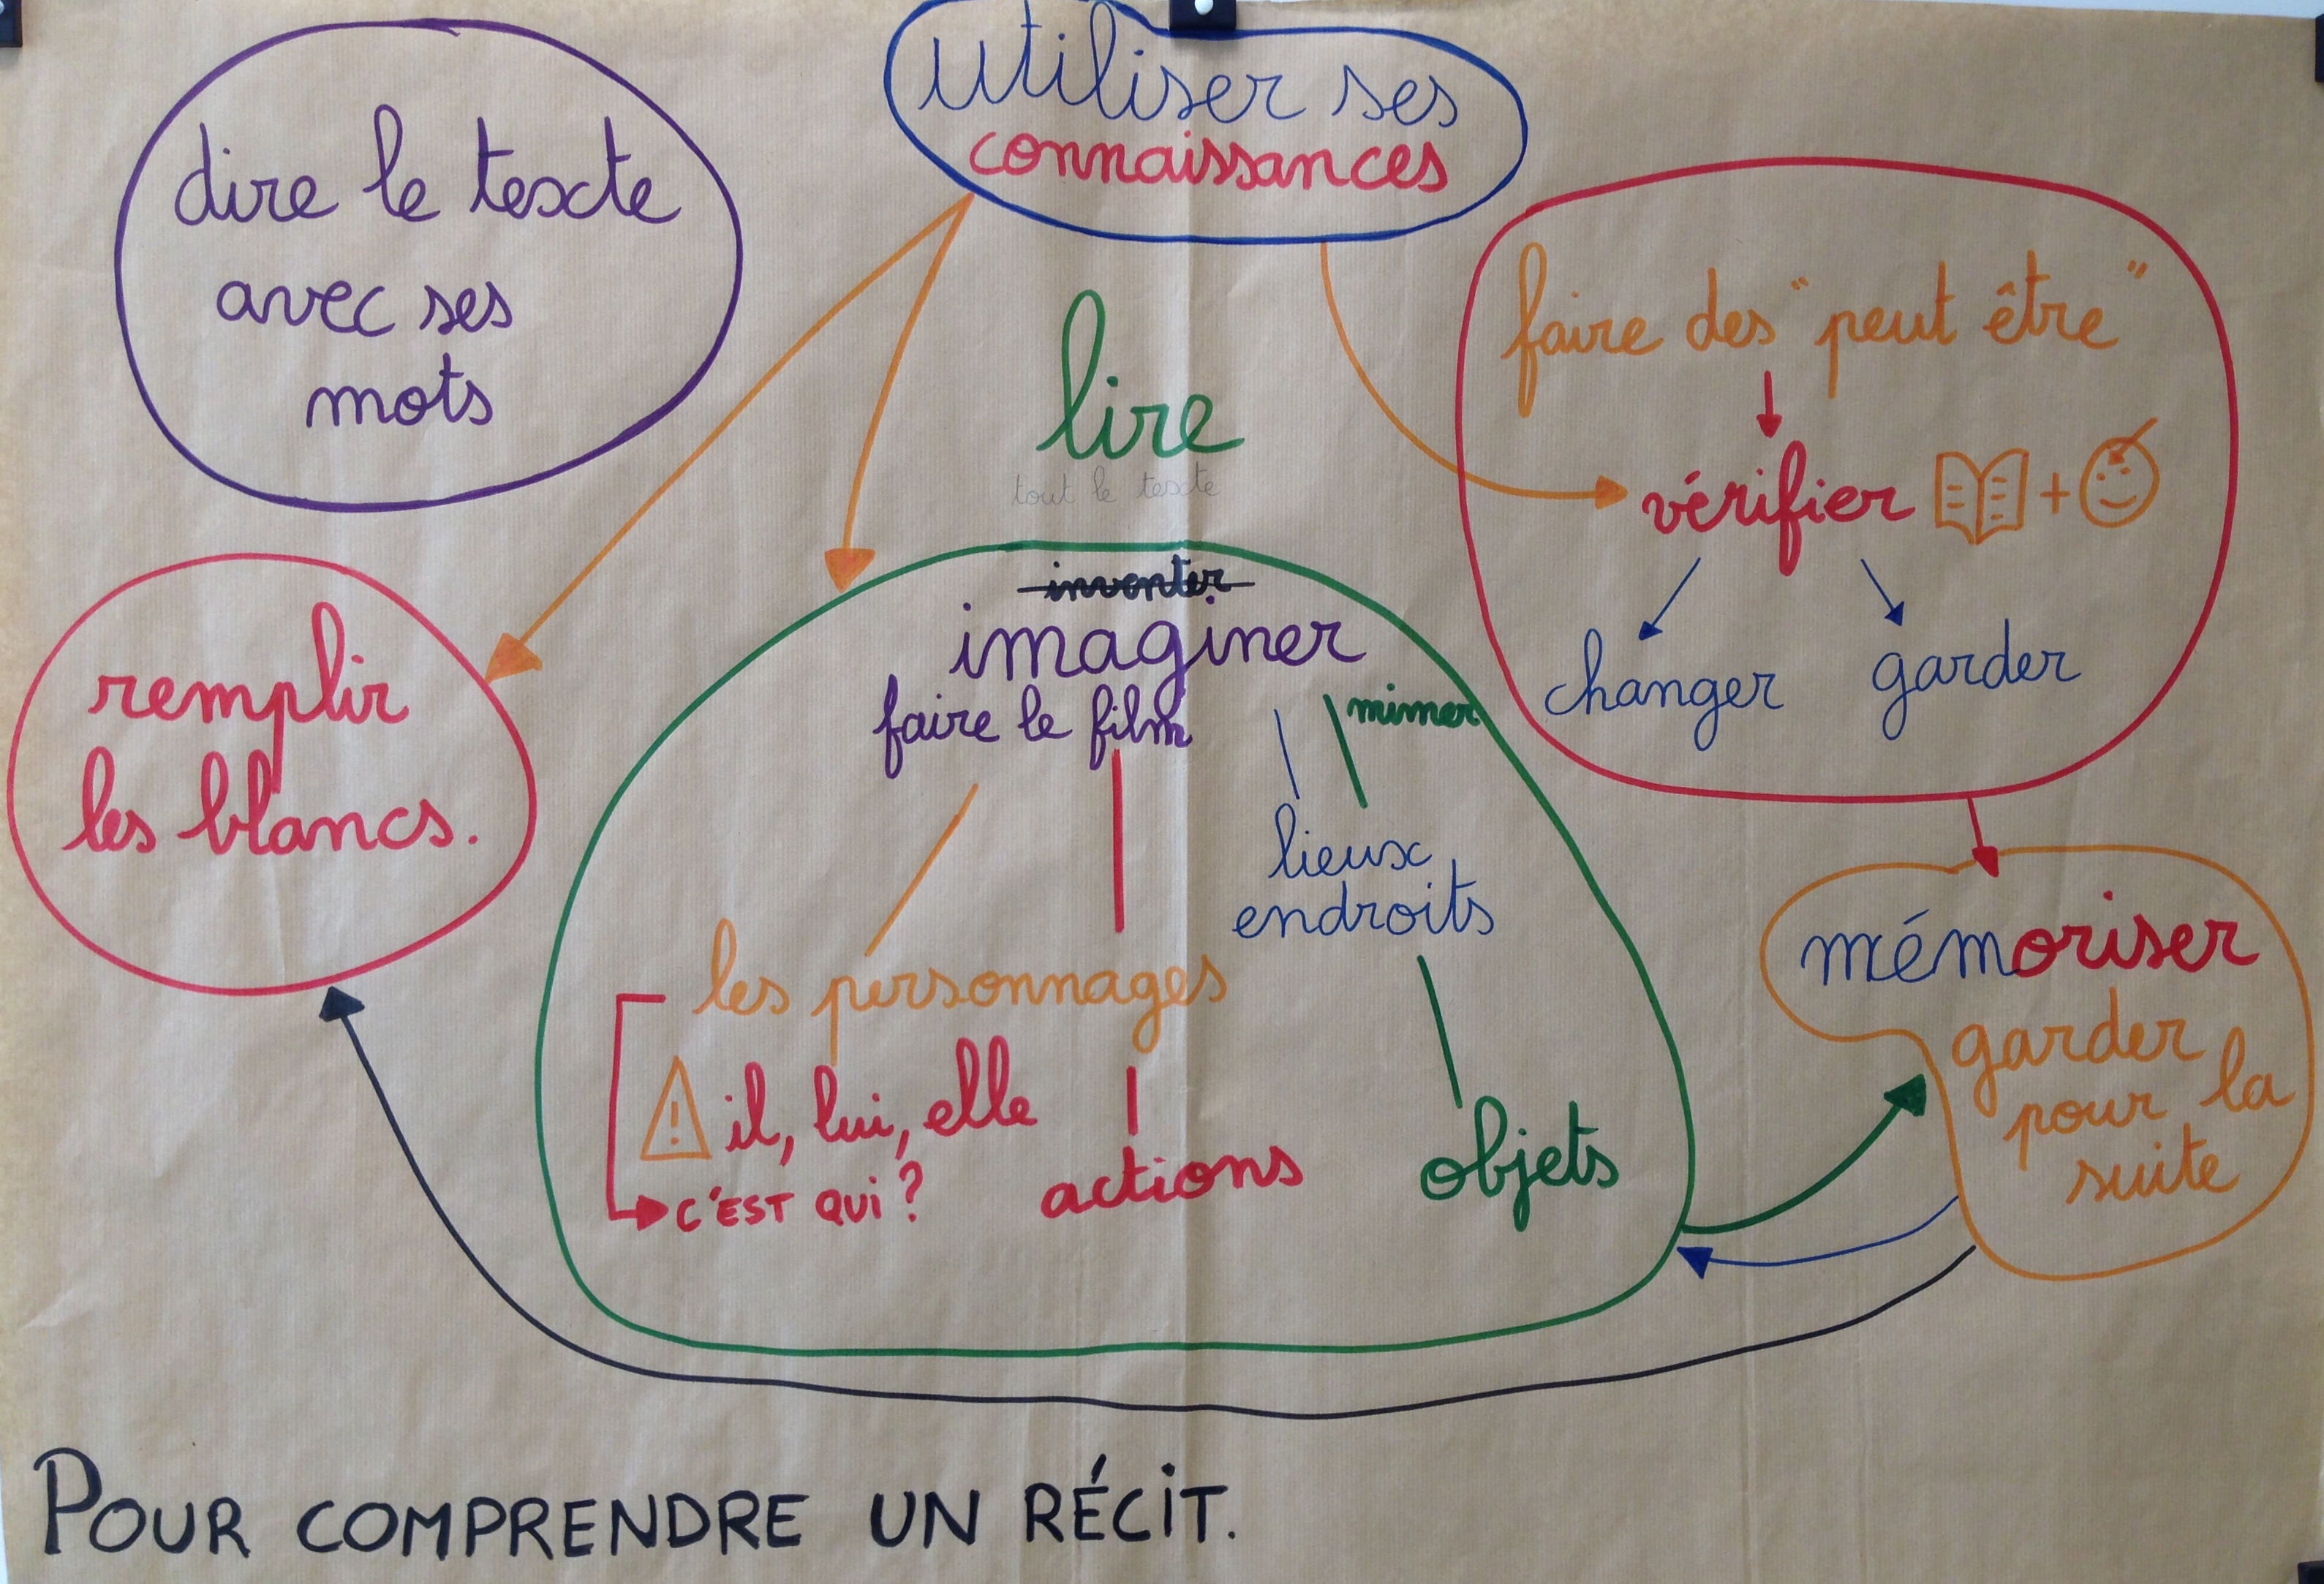 utiliser ses
connaissances
dire le texte
avec ses
mots
lire
tout le texte
faire des "peut être"
vérifier
+
changer
garder
remplir
les blancs.
inventer
imaginer
faire le film
mimer
lieux
endroits
les personnages
! il, lui, elle
C'EST QUI ?
actions
objets
mémoriser
garder
pour la
suite
POUR COMPRENDRE UN RÉCIT.